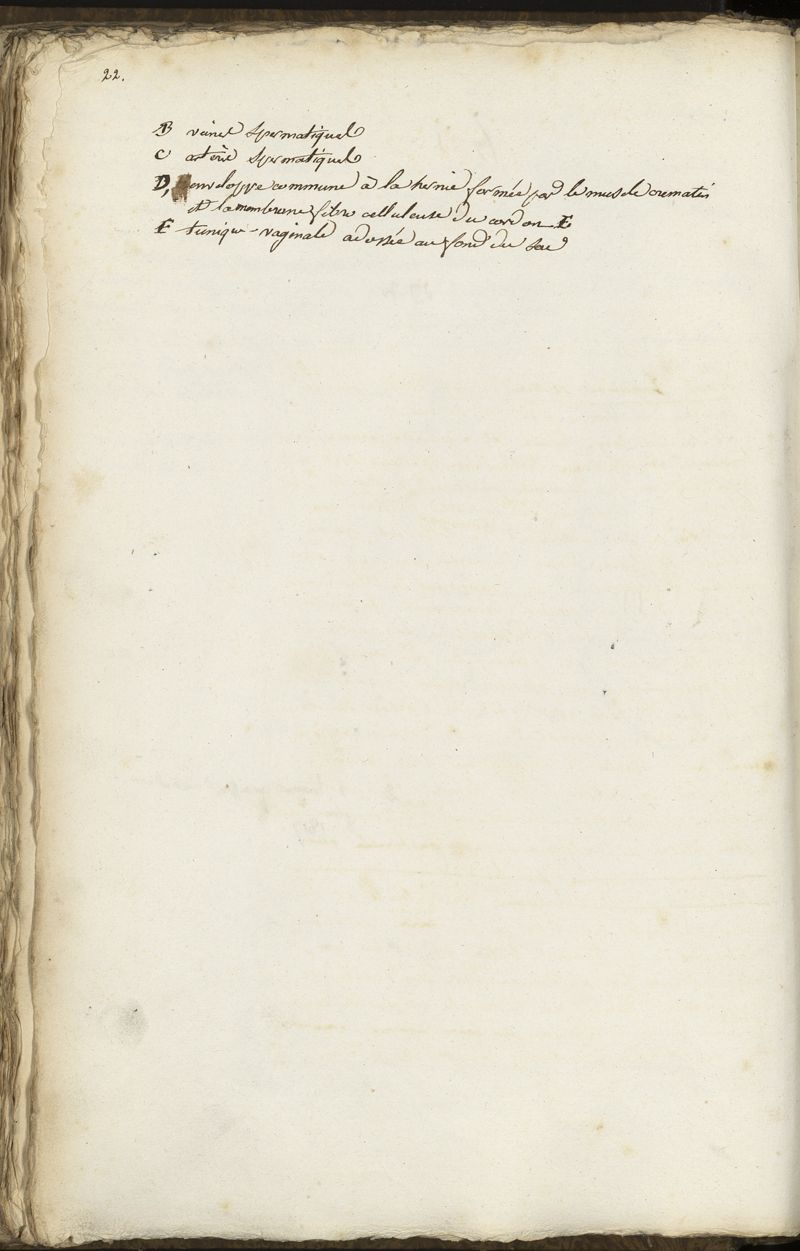 22.
B veines spermatiques
C artère spermatique
D, enveloppe commune à la hernie formée par le muscle cremaster
et la membrane fibro celluleuse du cordon E
E tunique vaginale adossée au fond du sac